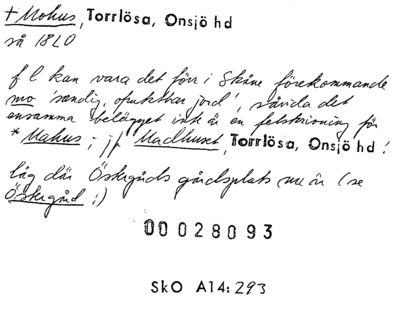 + Mohus, Torrlösa, Onsjö hd
så 1820
f l kan vara det förr i Skåne förekommande
mo 'sandig, ofruktbar jord', såvida det
ensamma belägget inte är en felskrivning för
* Mahus; jfr Madhuset, Torrlösa, Onsjö hd!
låg där Öskegårds gårdsplats nu är (se
Öskegård :)
00028093
SkO A14:293